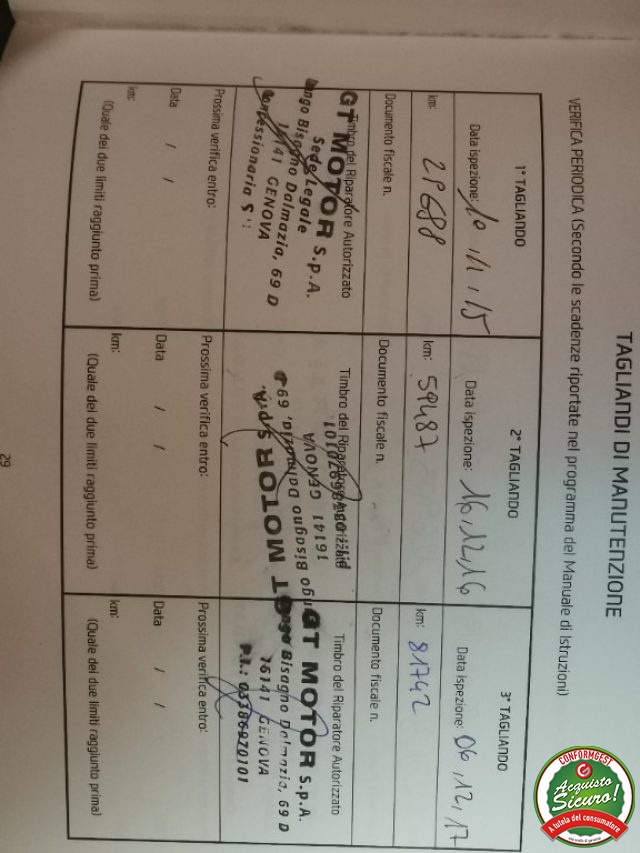 TAGLIANDI DI MANUTENZIONE
VERIFICA PERIODICA (Secondo le scadenze riportate nel programma del Manuale di Istruzioni)
1° TAGLIANDO
Data ispezione: 10, 11, 15
km: 29688
Documento fiscale n.
Timbro del Riparatore Autorizzato
GT MOTOR S.p.A.
Sede Legale
Lungo Bisagno Dalmazia, 69 D
16141 GENOVA
Concessionaria
Prossima verifica entro:
Data / /
km:
(Quale dei due limiti raggiunto prima)
2° TAGLIANDO
Data ispezione: 16, 12, 16
km: 59487
Documento fiscale n.
Timbro del Riparatore Autorizzato
GT MOTOR S.p.A.
Bisagno Dalmazia, 69
16141 GENOVA
Prossima verifica entro:
Data / /
km:
(Quale dei due limiti raggiunto prima)
3° TAGLIANDO
Data ispezione: 06, 12, 17
km: 81742
Documento fiscale n.
Timbro del Riparatore Autorizzato
GT MOTOR S.p.A.
Lungo Bisagno Dalmazia, 69 D
16141 GENOVA
P.I.: 03386970101
Prossima verifica entro:
Data / /
km:
(Quale dei due limiti raggiunto prima)
29
CONFORMGEST
Acquisto
Sicuro!
A tutela del consumatore